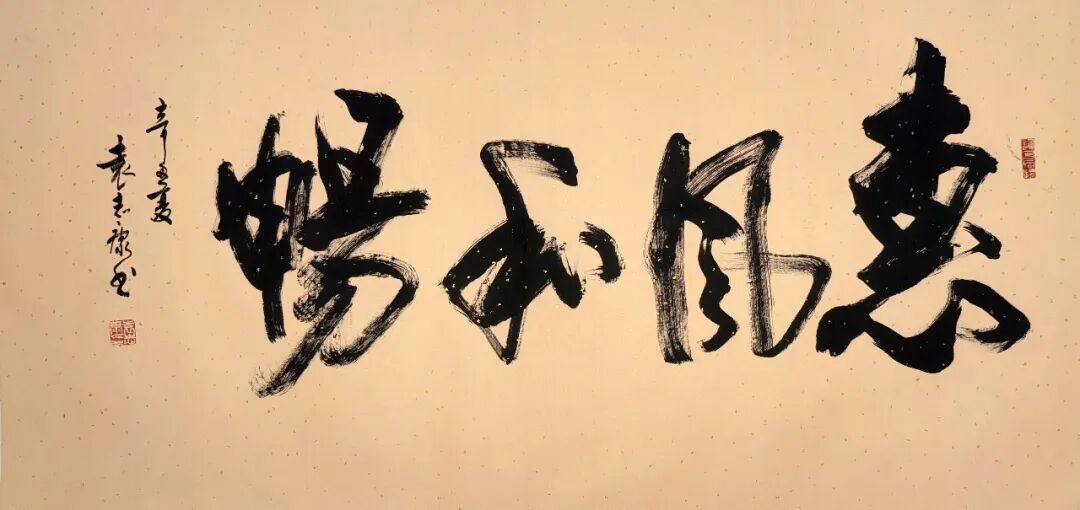 惠風和暢
辛丑夏
袁志康书